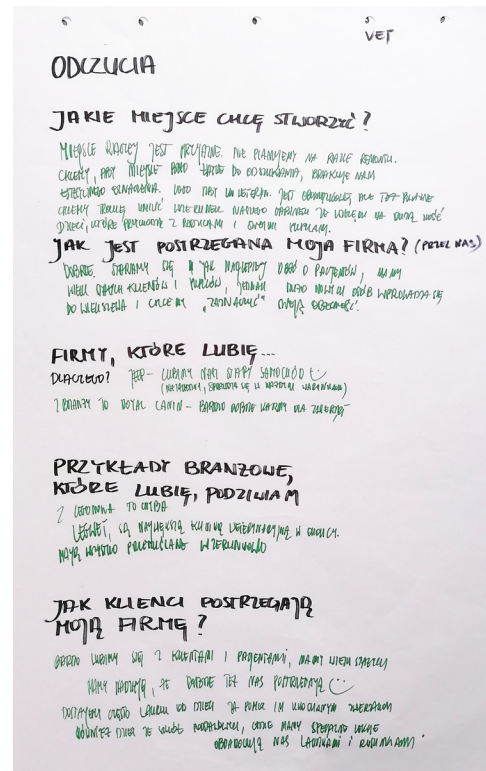 VET
ODCZUCIA
JAKIE MIEJSCE CHCĘ STWORZYĆ?
MIEJSCE RACZEJ JEST PRZYJAZNE. NIE PLANUJEMY NA RAZIE REMONTU.
CHCEMY, ABY MIEJSCE BYŁO ŁATWE DO ODSZUKANIA, BRAKUJE NAM
OZNACZENIA. JEST ALE TEŻ
CHCEMY TROCHĘ WIZERUNEK NASZEGO GABINETU ZE WZGLĘDU NA DUŻĄ ILOŚĆ
DZIECI, KTÓRE PRZYCHODZĄ Z RODZICAMI I SWOIMI PUPILAMI.
JAK JEST POSTRZEGANA MOJA FIRMA? (PRZEZ NAS)
DOBRZE. STARAMY SIĘ JAK NAJLEPIEJ DBAĆ O PACJENTÓW, MAMY
WIELU STAŁYCH KLIENTÓW I PUPILÓW, JEDNAK DUŻO NOWYCH OSÓB WPROWADZA SIĘ
DO WIELISZEWA I CHCEMY "ZAZNACZYĆ" SWOJĄ OBECNOŚĆ.
FIRMY, KTÓRE LUBIĘ...
DLACZEGO? JEEP - LUBIMY NASZ STARY SAMOCHÓD
(NIEZAWODNY, SPRAWDZA SIĘ W KAŻDYCH WARUNKACH)
Z BRANŻY TO ROYAL CANIN - BARDZO DOBRE KARMY DLA ZWIERZĄT
PRZYKŁADY BRANŻOWE,
KTÓRE LUBIĘ, PODZIWIAM
Z LEGIONOWA TO CHYBA
LEGWET, SĄ NAJWIĘKSZĄ KLINIKĄ WETERYNARYJNĄ W OKOLICY.
MAJĄ WSZYSTKO PRZEMYŚLANE WIZERUNKOWO
JAK KLIENCI POSTRZEGAJĄ
MOJĄ FIRMĘ?
BARDZO LUBIMY SIĘ Z KLIENTAMI I PACJENTAMI, MAMY WIELU STAŁYCH
MAMY NADZIEJĘ, ŻE DOBRZE TEŻ NAS POSTRZEGAJĄ
DOSTAJEMY CZĘSTO LAURKI OD DZIECI ZA POMOC ICH UKOCHANYM ZWIERZAKOM
RÓWNIEŻ DZIECI ZE SZKÓŁ PODSTAWOWYCH, GDZIE MAMY SPECJALNE LEKCJE
OBDAROWUJĄ NAS LAURKAMI I RYSUNKAMI.